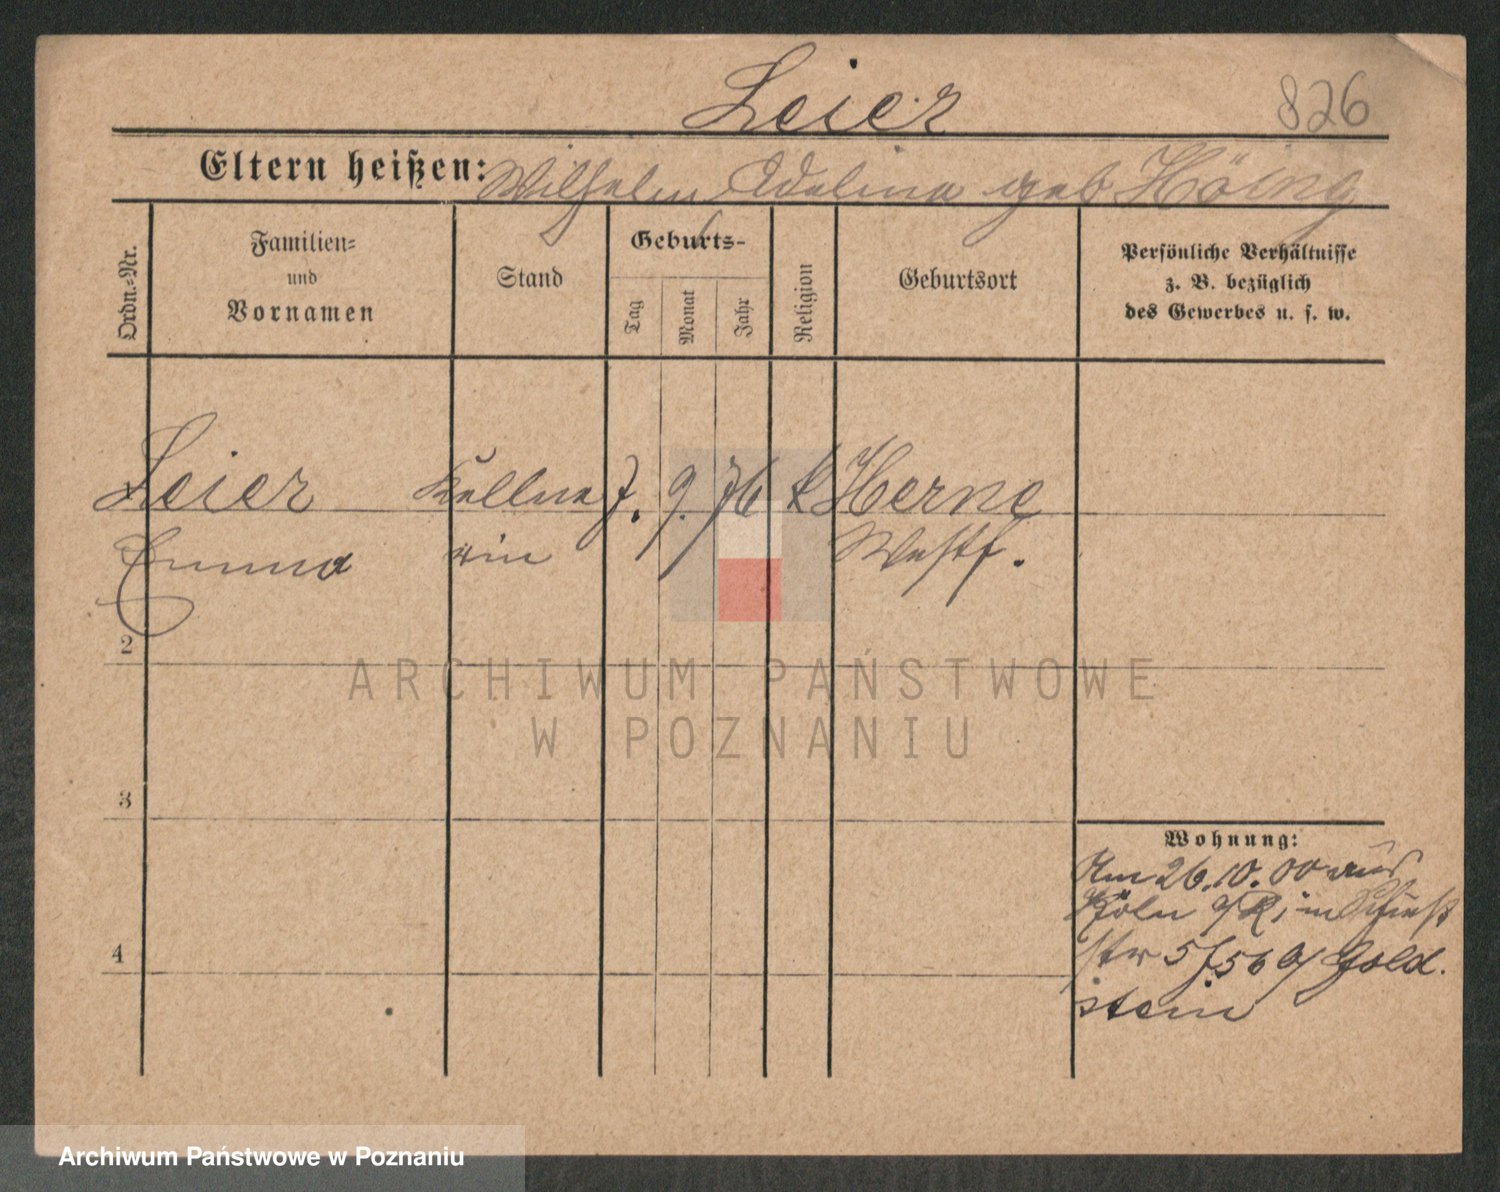 Leier
826
Eltern heißen: Wilhelm, Adelina geb Höing
Ordn.-Nr.
Familien-
und
Vornamen
Stand
Geburts-
Tag
Monat
Jahr
Religion
Geburtsort
Persönliche Verhältnisse
z. B. bezüglich
des Gewerbes u. s. w.
Leier Kellne 7. 9. 76 k Herne
Emma rin Westf.
2
3
4
Wohnung:
Am 26.10.00 aus
Köln a/R; in
str 5 b/ Gold.
stein
ARCHIWUM PAŃSTWOWE
W POZNANIU
Archiwum Państwowe w Poznaniu